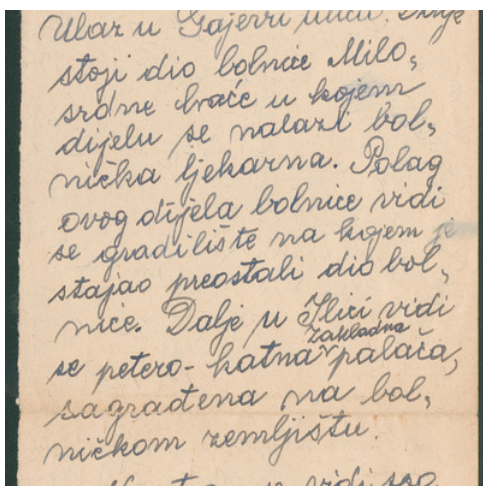 Ulaz u Gajevoj ulici. Dalje
stoji dio bolnice Milo„
srdne braće u kojem
dijelu se nalazi bol„
nička ljekarna. Polag
ovog dijela bolnice vidi
se gradilište na kojem je
stajao preostali dio bol„
nice. Dalje u Ilici vidi
zakladna
se petero-katna palača,
sagrađena na bol„
ničkom zemljištu.
vidi se